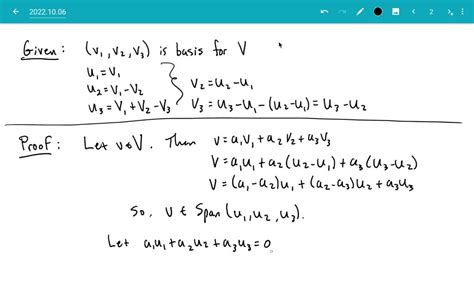 2022.10.06
2
Given: (v₁, v₂, v₃) is basis for V
u₁ = v₁
u₂ = v₁ - v₂
v₂ = u₂ - u₁
u₃ = v₁ + v₂ - v₃
v₃ = u₃ - u₁ - (u₂ - u₁) = u₃ - u₂
Proof: Let v ∈ V. Then v = a₁v₁ + a₂v₂ + a₃v₃
v = a₁u₁ + a₂(u₂ - u₁) + a₃(u₃ - u₂)
v = (a₁ - a₂)u₁ + (a₂ - a₃)u₂ + a₃u₃
So, v ∈ Span(u₁, u₂, u₃).
Let a₁u₁ + a₂u₂ + a₃u₃ = 0